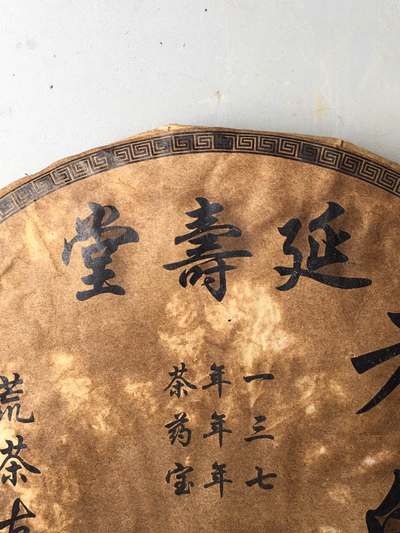 延壽堂
一年茶
三年药
七年宝
荒茶